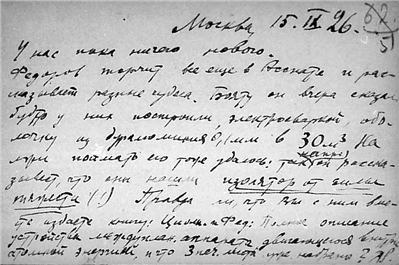 62/5
Москва, 15.IX 26.
У нас пока ничего нового.
Федоров торчит все еще в Асснате и рас-
сказывает разные чудеса. Вяту он вчера сказал
будто у них построили электросваркой обо-
лочку из дуралюминия 0,1 мм в 30 м³ На
лжи поймать его тоже удалось: такой расска-
зывает, что они нашли изолятор от силы
тяжести (!) Правда ли, что Вы с ним вме-
сте издаете книгу: Циолк. и Фед: Полное описание
устройства междуплан. аппарата, двигающегося внутри
атомной энергией, и что 3 печ. листа уже набрано